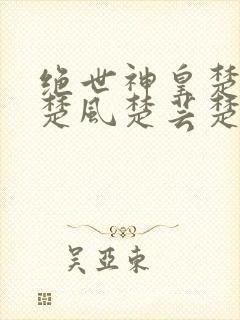 绝世神皇楚
楚风楚芸楚
吴亚东